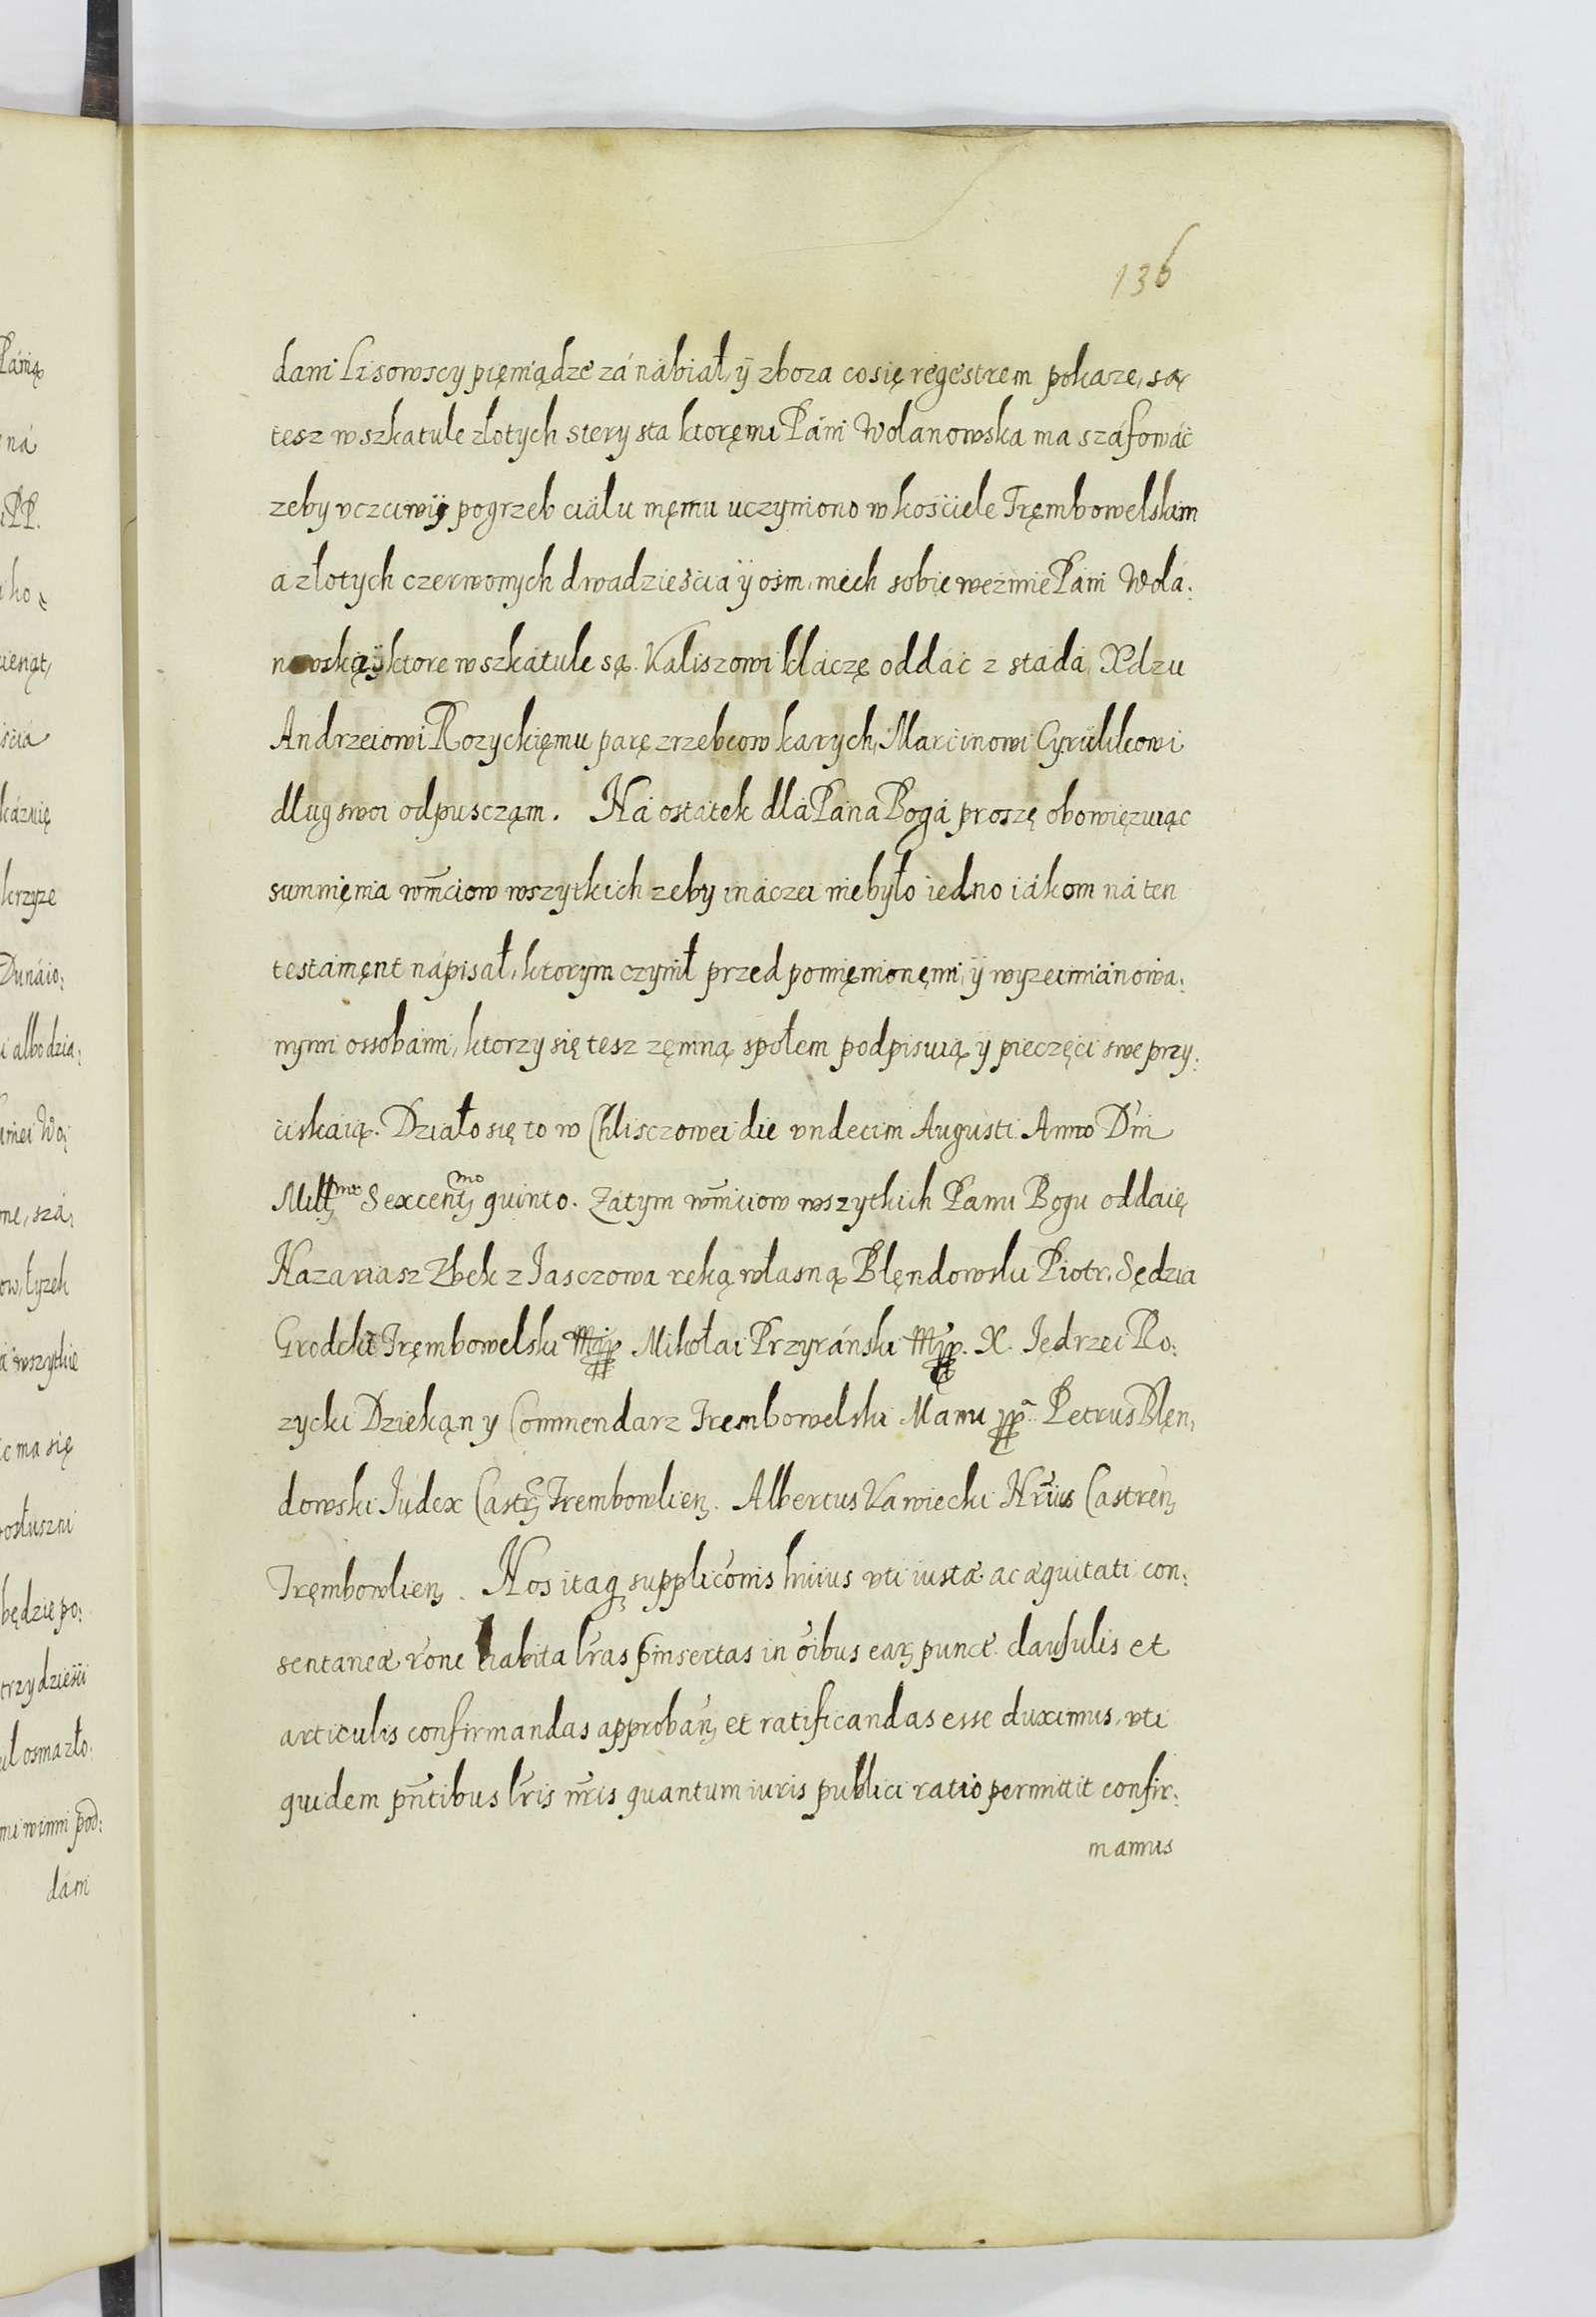 136
dani Lisowscy pięniądze zá nábiał, ÿ zboza co się regestrem pokaze, są
tesz w szkatule złotych stery sta ktoręmi Páni Wolanowska ma száfowáć
zeby vczciwÿ pogrzeb ciálu męmu uczyniono w kościele Tręmbowelskim
a złotych czerwonych dwadzieścia ÿ ośm, niech sobie weźmie Páni Wolá:
nowská ktore w szkátule są. Kaliszowi kláczę oddáć z stádá, Xdzu
Andrzeiowi Rozyckięmu parę zrzebcow karych, Marcinowi Cyrulikowi
dług swoi odpuscząm. Ná ostátek dlá Páná Bogá proszę obowięzuiąc
sumnięnia wm̃ciow wszytkich zeby ináczei niebyło iedno iákom ná ten
testamęnt nápisał, ktorym czynił przed pomięnionęmi, ÿ wyzei miánowá:
nymi ossobámi, ktorzy się tesz zęmną społem podpisuią y pieczęci swe przy:
ciskaią. Działo się to w Chlisczowei die vndecim Augusti Anno Dńi
Mill͛mo Sexcent͛mo quinto. Zátym wm̃ciow wszytkich Panu Bogu oddaię
Nazariasz Zbek z Jasczowa ręką własną Blęndowski Piotr. Sędzia
Grodcki Tręmbowelski Mpp Mikołai Przyránski Mpp. X. Jędrzei Ro:
zycki Dziekąn y Commendarz Trembowelski Manu pp̃ Petrus Blęn,
dowski Iudex Castr̃ Trembowlien̨. Albertus Kawiecki Nr̃ius Castren̨
Tręmbowlien̨. Nos itaq̨ supplicõnis huius vti iustæ ac æquitati con:
sentaneæ rõne habita lr̃as p̃insertas in õibus earꝫ punct͛ clausulis et
articulis confirmandas approban̨ et ratificandas esse duximus, vti
quidem pñtibus lr̃is nr̃is quantum iuris publici ratio permittit confir:
mamus